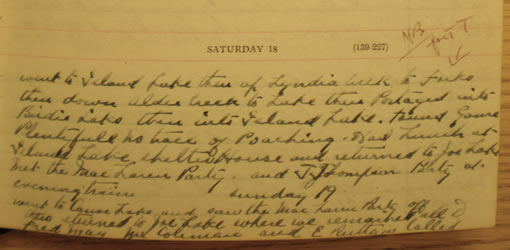 NB
for T
SATURDAY 18 (139-227)
went to Island Lake then up Lyndia Creek to Forks
then down alder creek to Lake then Portaged into
Birdie Lake then into Island Lake. Found Game
Plentifull no trace of Poaching. Had Lunch at
Island Lake shelter House and returned to Joe Lake
Met the Mac Laren Party. and T Thompson Party at
evening train
Sunday 19
went to Canoe Lake and saw the Mac Laren Party off
and returned to Joe Lake where we remained all D
Fred May Mr Coleman and E called